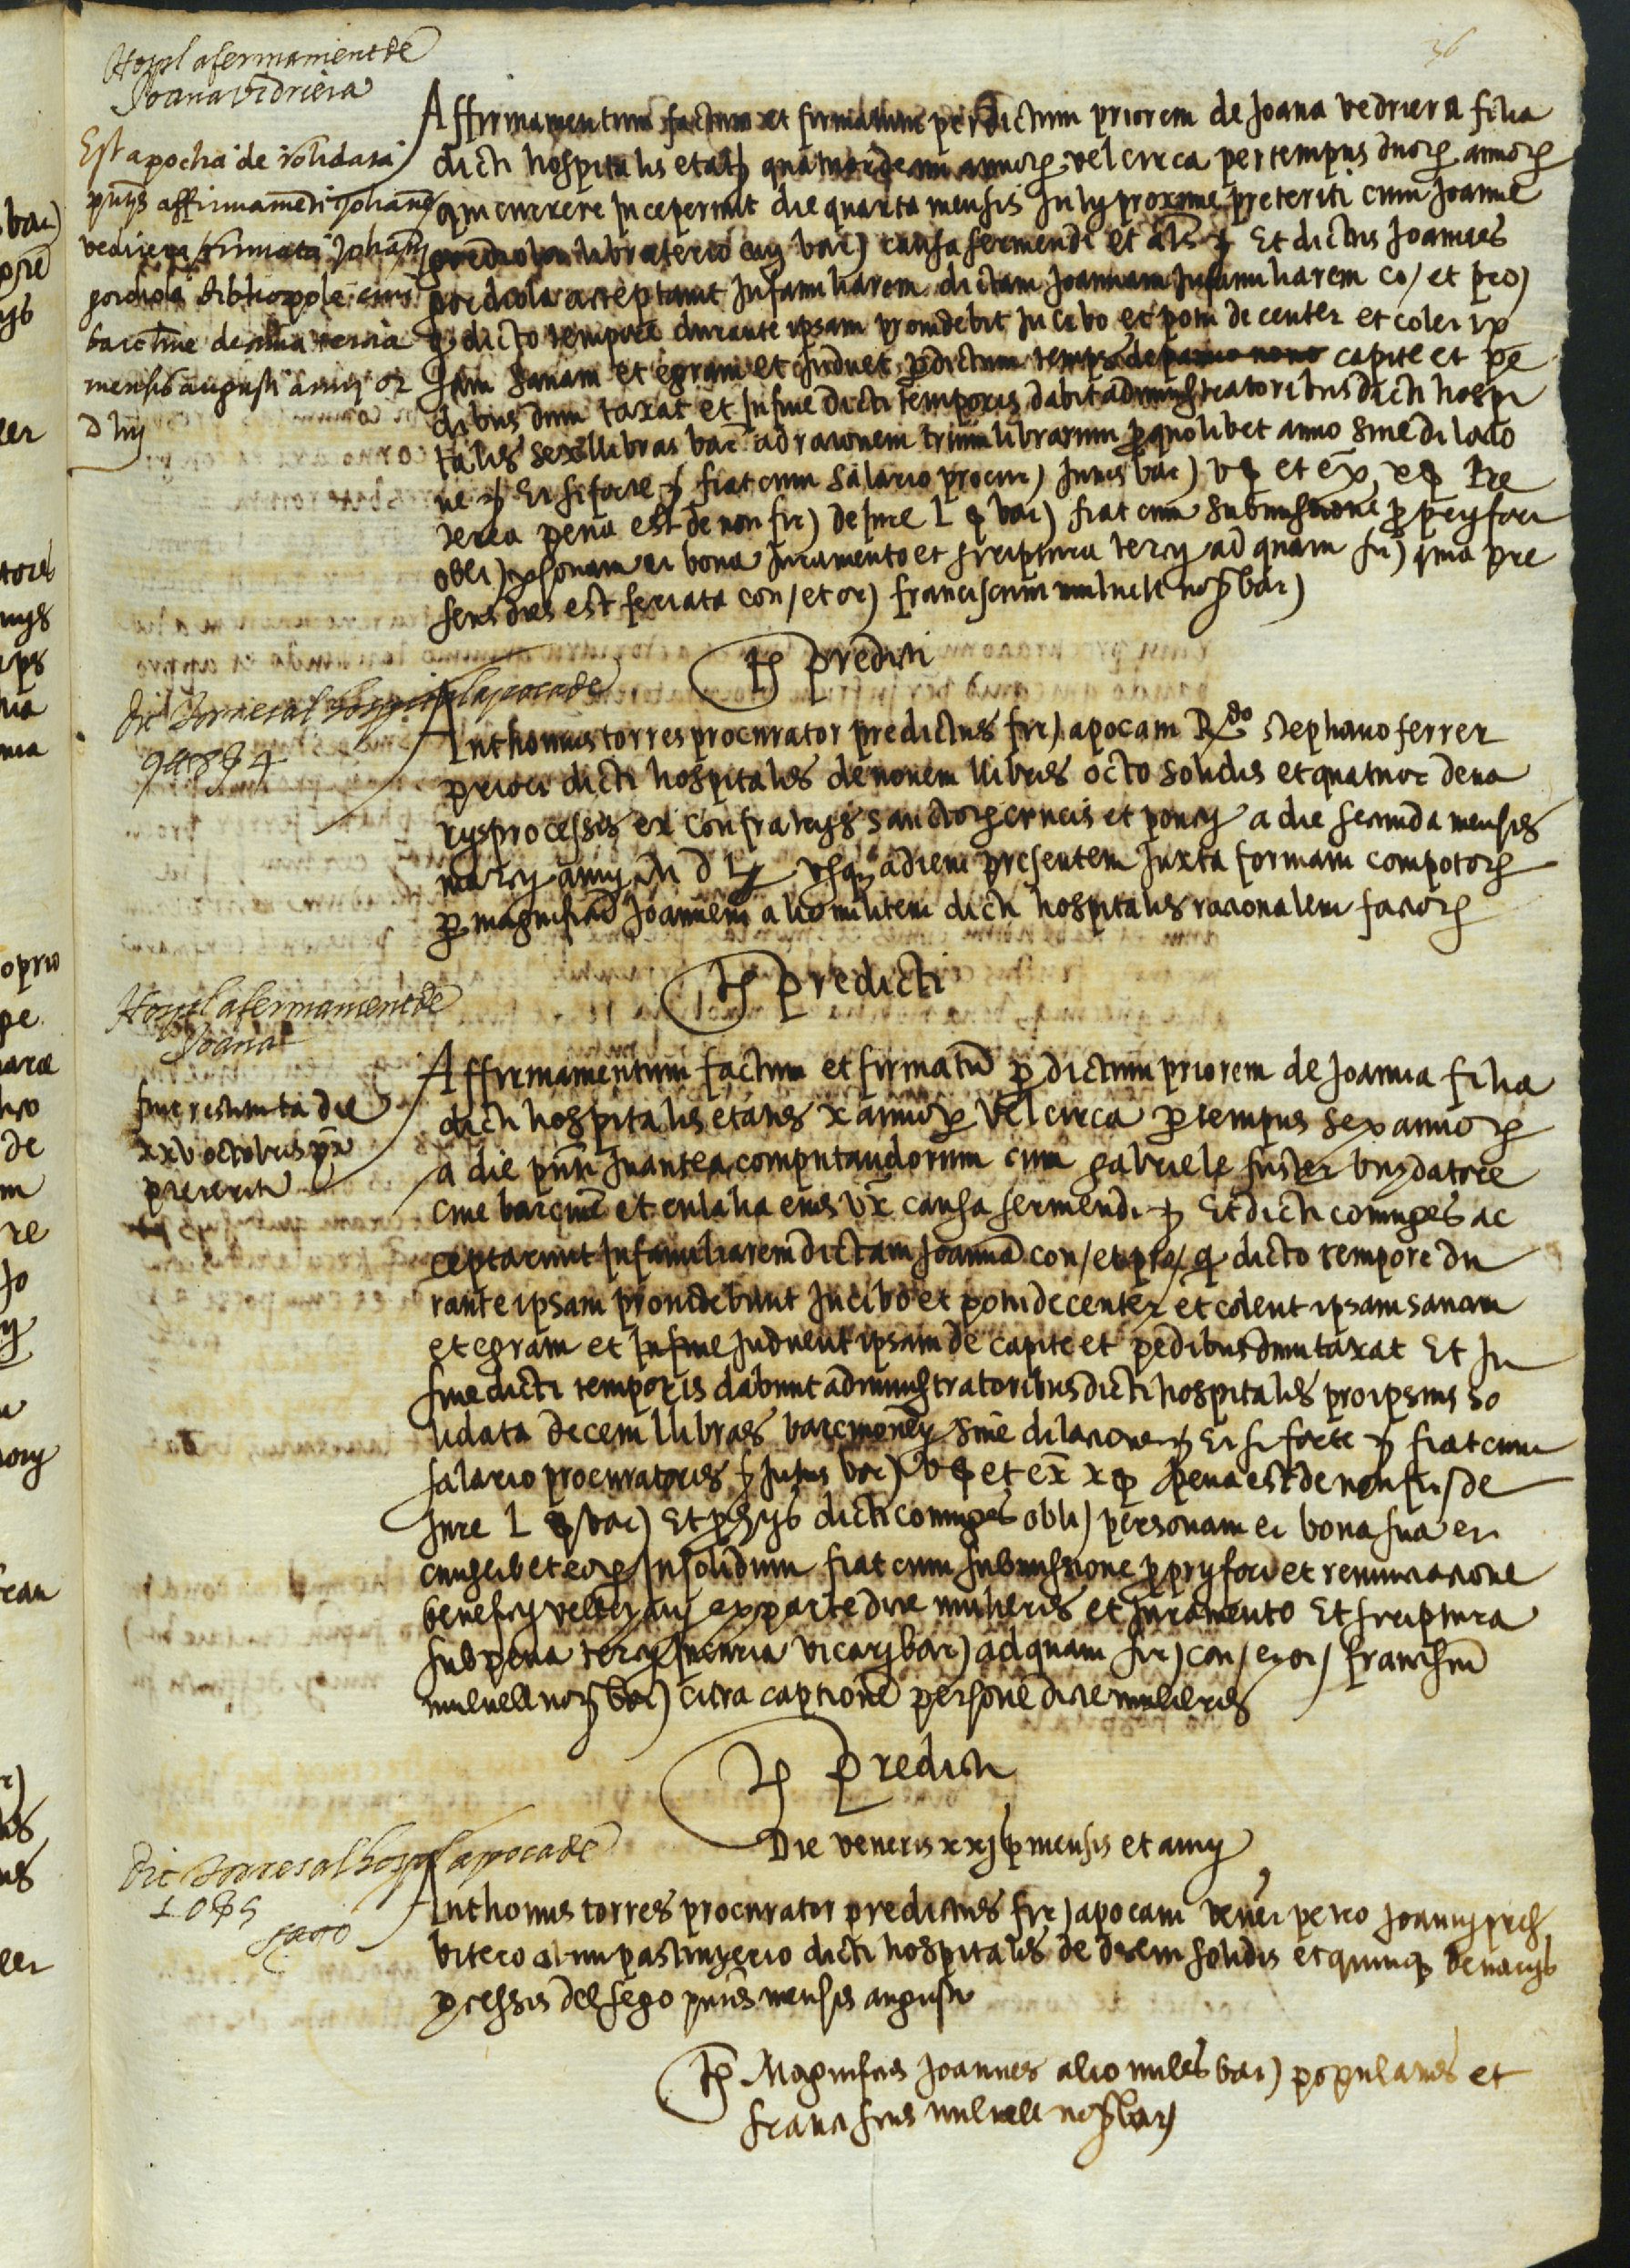 36
Hospl afermament de
Joana vidriera
Est apocha de solidata
pntis affirmamenti Johane
vedriera firmata Johani
gordiola bibliopole civi
barcine de
mensis augusti anni
D liij
Affirmamentum factum et firmatum per dictum priorem de Joana vedriera filia
dicti hospitalis etatis quatuordecim annorum vel circa per tempus duorum annorum
qui currere inceperunt die quarta mensis July proxime preteriti cum Joanne
libraterio cive bar) causa serviendi et als Et dictus Joannes
acceptavit in familiarem dictam Joannam in familiarem co/ et pro)
dicto tempore durante ipsam providebit in cibo et potu decenter et colet ip
sam sanam et egram et induet per dictum temps de capite et pe
dibus dum taxat et in fine dicti temporis dabit administratoribus dicti hospi
talis sex llibras bar ad racionem trium librarum pro quolibet anno sine dilacio
ne Et si forte fiat cum salario procur) intus bar) v s et ex x s Pre
terea pena est de non fir) de jure L s bar) fiat cum submissione proprii fori
obli) personam et bona juramento et scriptura tercii ad quam fir) quia pre
sens dies est feriata con/ et or) franciscum mulnell not bar)
Ts predicti
Dit Torres al hospital apoca de
9 ll 8 s 4
Anthonius torres procurator predictus fir) apocam Rdo stephano ferrer
priori dicti hospitalis de novem llibris octo solidis et quatuor dena
rys processis ex confratrys sanctorum crucis et poncy a die secunda mensis
marcy anny M D L usque ad diem presentem Juxta formam compotorum
per magnificum Joannem alio militem dicti hospitalis racionalem factorum
Ts predicti
Hospl afermament de
Joana
fuit restituta die
xxv octobris px
preteriti
Affirmamentum factum et firmatum per dictum priorem de Joanna filia
dicti hospitalis etatis x annorum vel circa per tempus sex annorum
a die pnti in antea computandorum cum gabriele fuster brodatore
cive barcine et eulalia eius ux causa serviendi Et dicti coniuges ac
ceptarunt in familiarem dictam Joannam con/ et pro/ dicto tempore du
rante ipsam providebunt in cibo et potu decenter et colent ipsam sanam
et egram et in fine induent ipsam de capite et pedibus dumtaxat Et in
fine dicti temporis dabunt administratoribus dicti hospitalis pro ipsius so
lidata decem llibras barcinonen sine dilacione Et si forte fiat cum
salario procuratoris intus bar) v s et ex x s pena est de non fir/ de
jure L s bar) Et pro hys dicti coniuges obli) personam et bona sua et
cuiuslibet eorum insolidum fiat cum submissione proprii fori et renunciacione
beneficy velleyani ex parte dicte mulieris et juramento Et scriptura
sub pena tercy in curia vicary bar) ad quam fir) con/ et or/ franciscum
mulnell not bar) citra captionem persone dicte mulieris
Ts predicti
Die veneris xxj pr mensis et anny
Dit Torres al hospl apoca de
10 s 5
sago
Anthonius torres procurator predictus fir) apocam veneli petro Joanny presb
vitero olim dicti hospitalis de decem solidis et quinque denarys
processis del sego pntis mensis augusti
Ts Magnificus Joannes alio miles bar) populatus et
franciscus mulnell not bar)